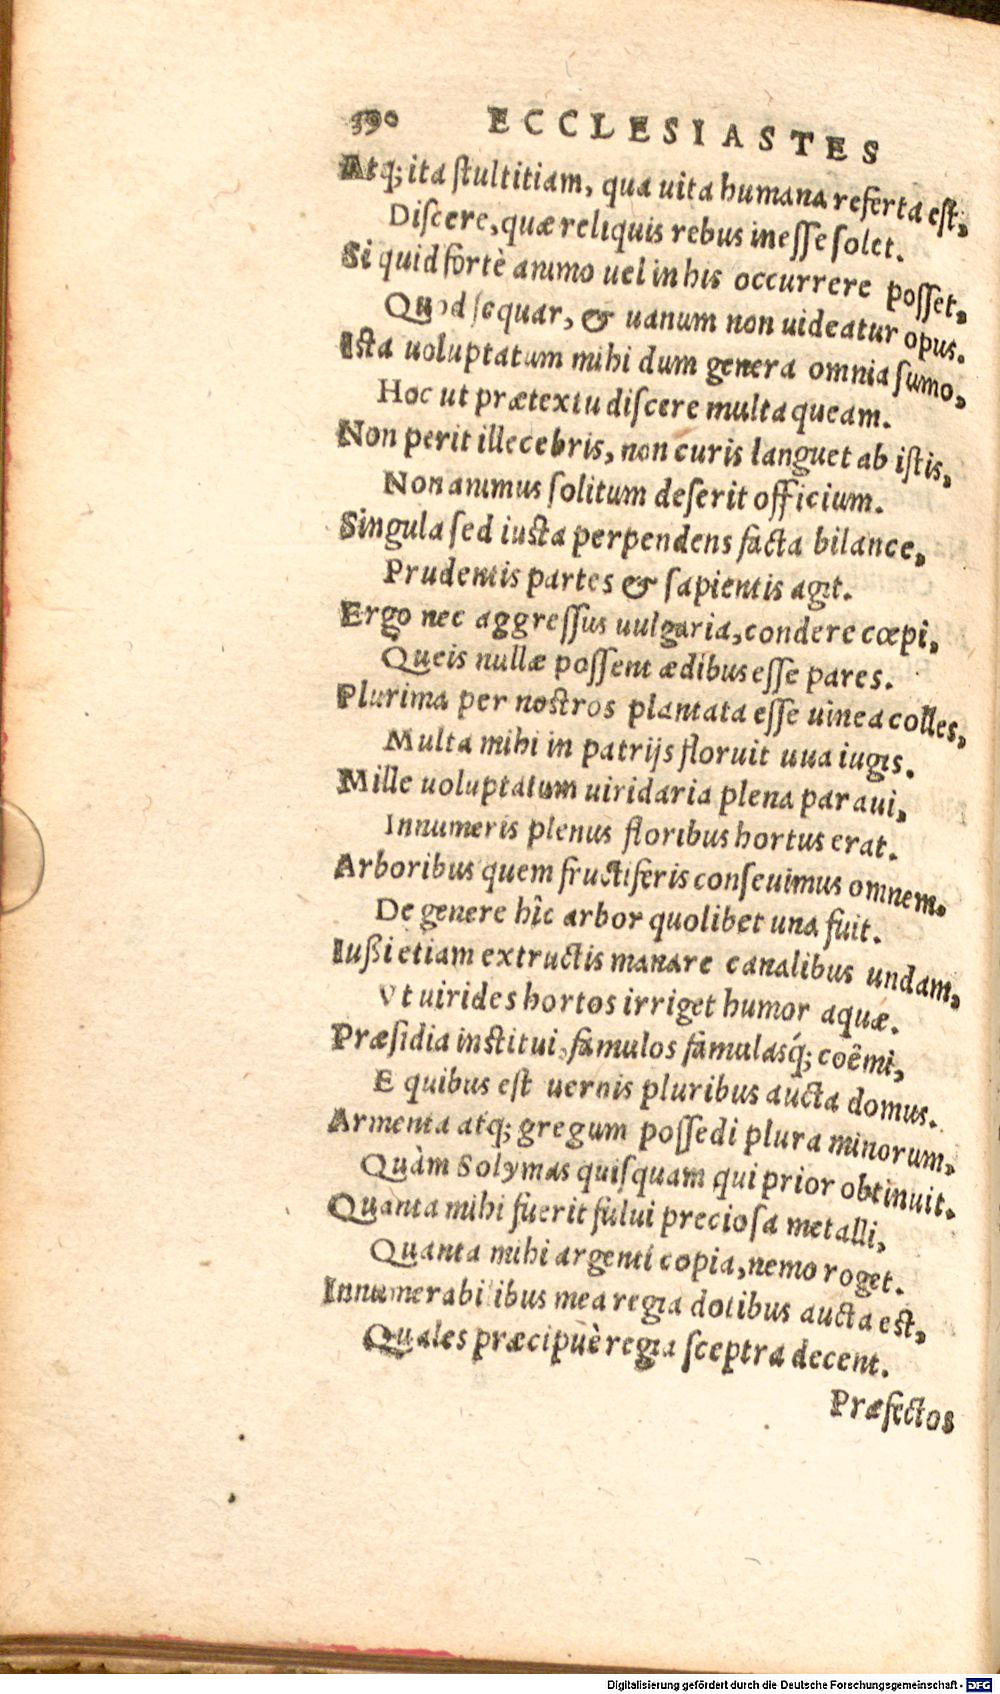 390 ECCLESIASTES
Atq; ita ſtultitiam, qua uita humana referta eſt,
Diſcere, quæ reliquis rebus ineſſe ſolet.
Si quid fortè animo uel in his occurrere poſſet,
Quod ſequar, & uanum non uideatur opus.
Iſta uoluptatum mihi dum genera omnia ſumo,
Hoc ut prætextu diſcere multa queam.
Non perit illecebris, non curis languet ab iſtis,
Non animus ſolitum deſerit officium.
Singula ſed iuſta perpendens facta bilance,
Prudentis partes & ſapientis agit.
Ergo nec aggreſſus uulgaria, condere cœpi,
Queis nullæ poſſent ædibus eſſe pares.
Plurima per noſtros plantata eſſe uinea colles,
Multa mihi in patrijs floruit uua iugis.
Mille uoluptatum uiridaria plena paraui,
Innumeris plenus floribus hortus erat.
Arboribus quem fructiferis conſeuimus omnem.
De genere hîc arbor quolibet una fuit.
Iußi etiam extructis manare canalibus undam,
Vt uirides hortos irriget humor aquæ.
Præſidia inſtitui, famulos famulasq́; coêmi,
E quibus eſt uernis pluribus aucta domus.
Armenta atq; gregum poſſedi plura minorum,
Quàm Solymas quiſquam qui prior obtinuit.
Quanta mihi fuerit fului precioſa metalli,
Quanta mihi argenti copia, nemo roget.
Innumerabilibus mea regia dotibus aucta eſt,
Quales præcipuè regia ſceptra decent.
Præfectos
Digitalisierung gefördert durch die Deutsche Forschungsgemeinschaft - DFG